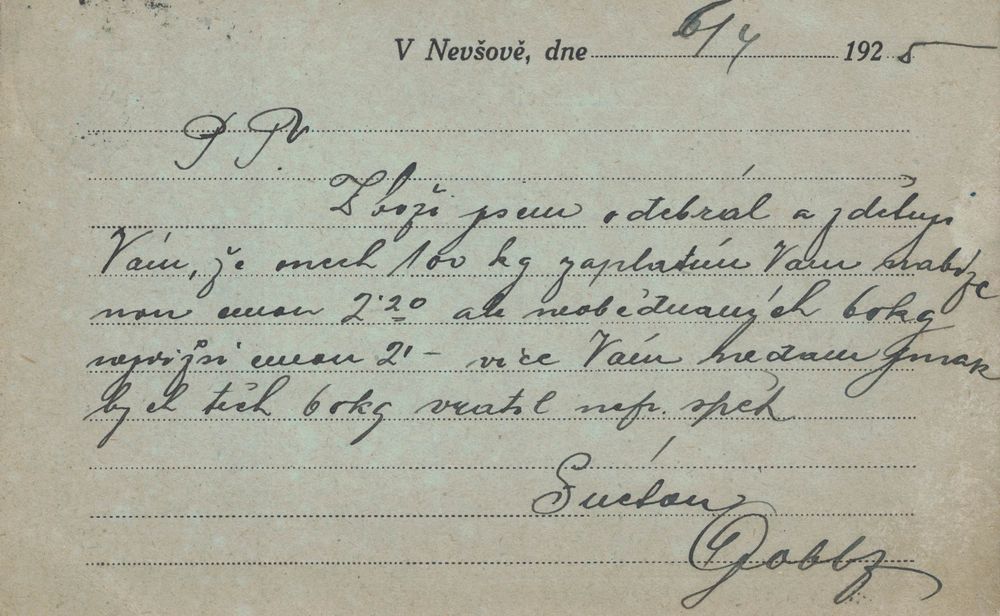 V Nevšově, dne 6/4 1925
P. P.
Zboží jsem odebral a zděluji
Vám, že onech 100 kg zaplatím Vám nabíze
nou cenou 2·20 ale neobědnaných 60 kg
nejnižší cenou 2'– více Vám nedám jinak
bych těch 60 kg vrátil nefr. spět
S úctou